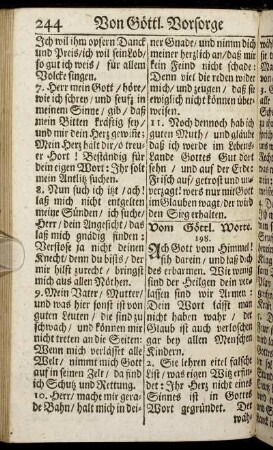 244 Von Göttl. Vorsorge
Ich wil ihm opfern Danck
und Preis/ich wil sein Lob/
so gut ich weis / für allem
Volcke singen.
7. Herr mein Gott / höre/
wie ich schrey / und seufz in
meinem Sinne / gib / daß
mein Bitten kräftig sey/
und mir dein Herz gewiñe:
Mein Herz hält dir/ o treu-
er Hort ! Beständig für
dein eigen Wort: Ihr solt
mein Antlitz suchen.
8. Nun such ich itzt / ach!
laß mich nicht entgelten
meine Sünden / ich suche/
Herr / dein Angesicht / das
laß mich gnädig finden:
Verstoße ja nicht deinen
Knecht/ denn du bists / der
mir hilft zurecht / bringst
mich aus allen Nöthen.
9. Mein Vater / Mutter/
und was hier sonst ist von
guten Leuten / die sind zu
schwach / und können mir
nicht treten an die Seiten:
Wenn mich verlässet alle
Welt/ nimmt mich Gott
auf in seinen Zelt / da find
ich Schutz und Rettung.
10. Herr/ mache mir gera-
de Bahn/ halt mich in dei-
ner Gnade/ und nimm dich
meiner herzlich an/daß mir
kein Feind nicht schade:
Denn viel die reden wider
mich/ und zeugen / daß sie
ewiglich nicht können über-
weisen.
11. Noch dennoch hab ich
guten Muth / und gläube
daß ich werde im Lebens-
Lande Gottes Gut dort
sehn / und auf der Erde:
Frisch auf/ getrost und un-
verzagt! wers nur mit Gott
im Glauben wagt/ der wird
den Sieg erhalten.
Vom Göttl. Worte.
198.
Ach Gott vom Himmel!
sih darein/ und laß dich
des erbarmen. Wie wenig
sind der Heilgen dein ver-
lassen sind wir Armen:
Dein Wort läßt man
nicht haben wahr / der
Glaub ist auch verloschen
gar bey allen Menschen
Kindern.
2. Sie lehren eitel falsche
List / was eigen Witz erfin-
det : Ihr Herz nicht eines
Sinnes ist in Gottes
Wort gegründet. Der
wäh-